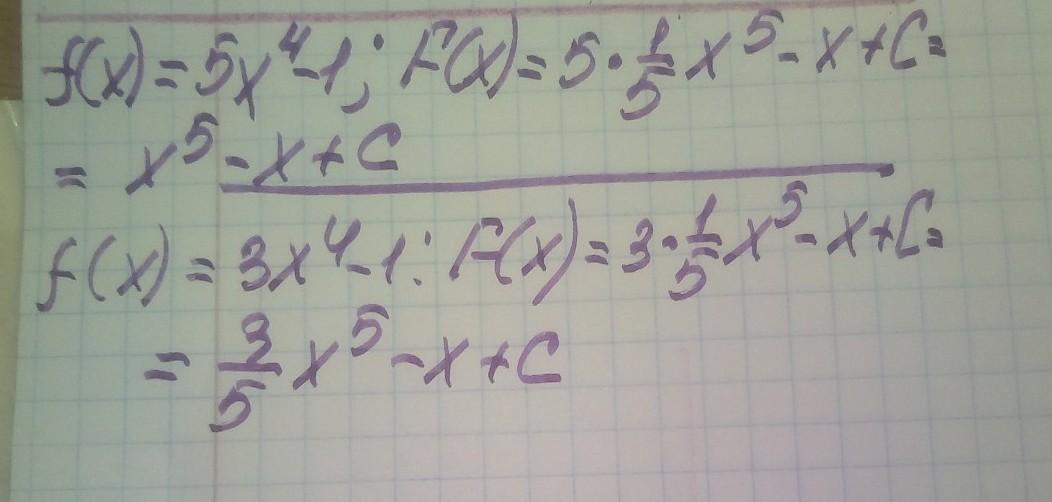 f(x) = 5x⁴-1; F(x) = 5·1/5 x⁵ - x + C =
= x⁵ - x + C
f(x) = 3x⁴-1: F(x) = 3·1/5 x⁵ - x + C =
= 3/5 x⁵ - x + C